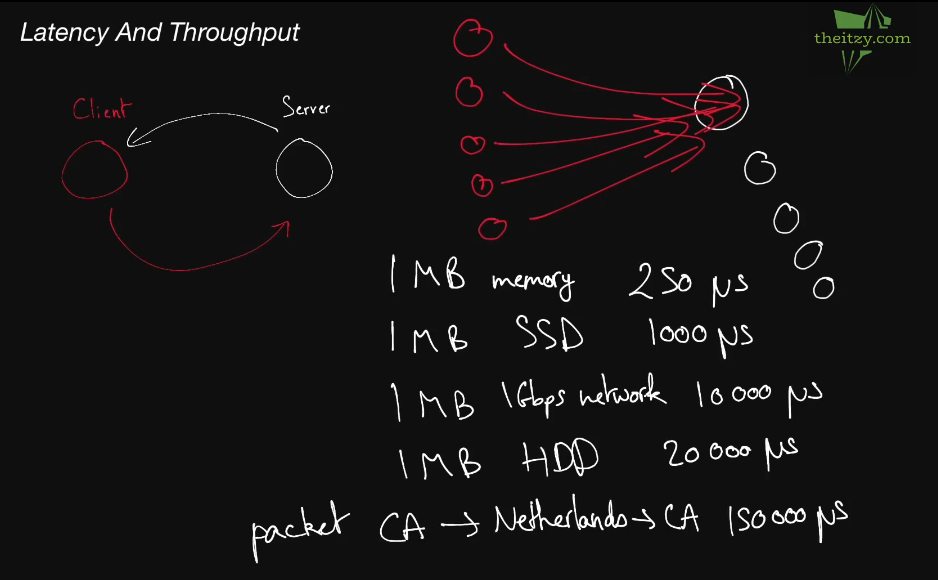 Latency And Throughput
theitzy.com
Client
Server
1 MB memory 250 μs
1 MB SSD 1000 μs
1 MB 1Gbps network 10000 μs
1 MB HDD 20000 μs
packet CA → Netherlands → CA 150000 μs